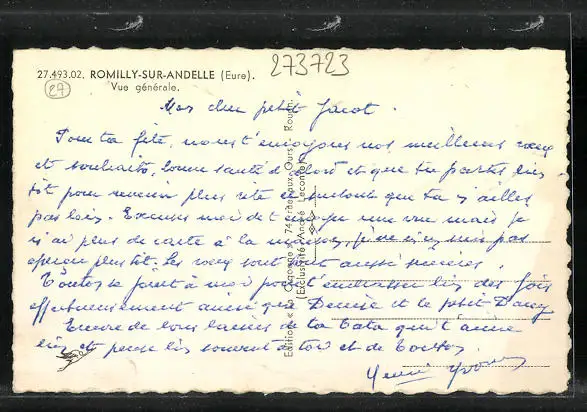 27.493.02. ROMILLY-SUR-ANDELLE (Eure).
Vue générale.
273723
27
Mon cher petit Jacot.
Pour ta fête, nous t'envoyons nos meilleurs vœux
et souhaits, bonne santé d'abord et que tu partes bien
tôt pour revenir plus vite et surtout que tu y ailles
pas loin. Excuses moi de t'envoyer une vue mais je
n'ai plus de carte à la maison, je ne m'en suis pas
aperçu plus tôt. Les vœux sont tout aussi sincères.
Toutou se joint à moi pour t'embrasser bien des fois
affectueusement ainsi que Denise et le petit Dany
Encore de bons baisers de ta Tata qui t'aime
bien et pense bien souvent à toi et de Toutou.
Yvonne
Edition « La Cigogne » 74, rue Jeanne-d'Arc - Rouen
(Exclusivité André Leconte)